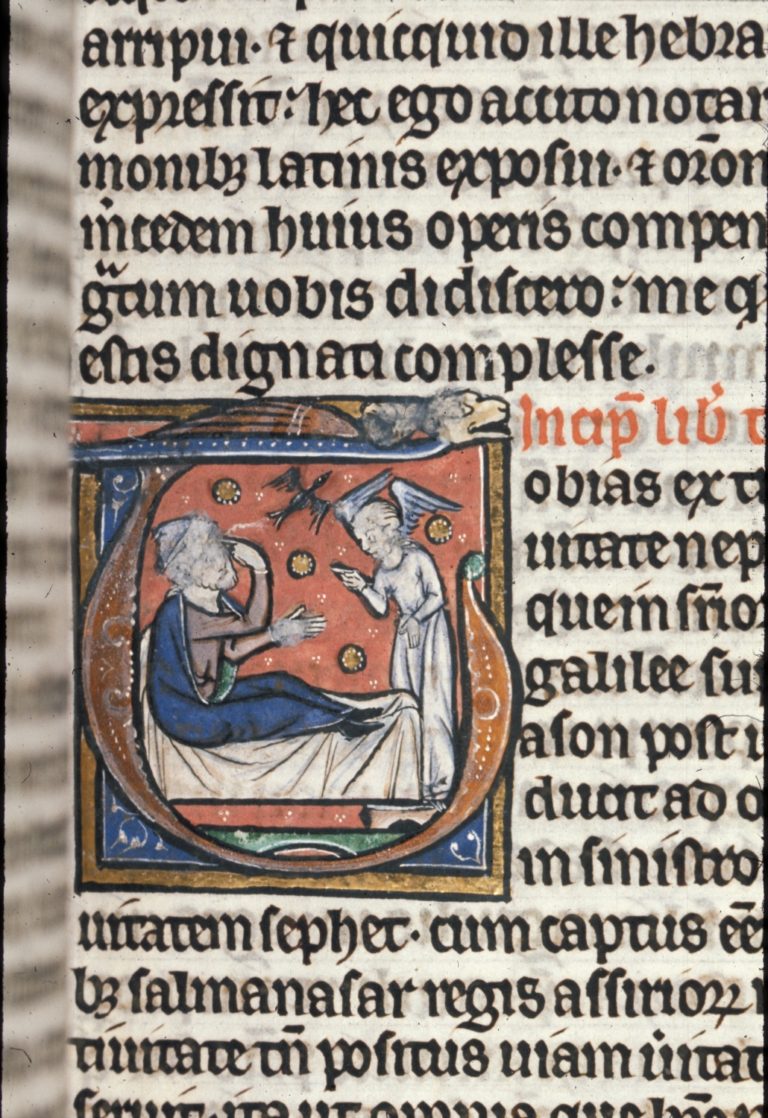 arripui· ⁊ quicquid ille hebra
expressit: hec ego accito notar
monibꝫ latinis exposui· ⁊ orōn
mcedem huius operis compen
gtum uobis didiscero: me q
estis dignati complesse.
Incip̄ lib̄ t
obias ex t
uitate nep
que in s̄rio
galilee su
ason post
ducit ad o
in sinistro
uitatem sephet· cum captus eēt
bꝫ salmanasar regis assirioꝝ
tiuitate tn̄ positus uiam uitat
seruit· ita ut omnia que